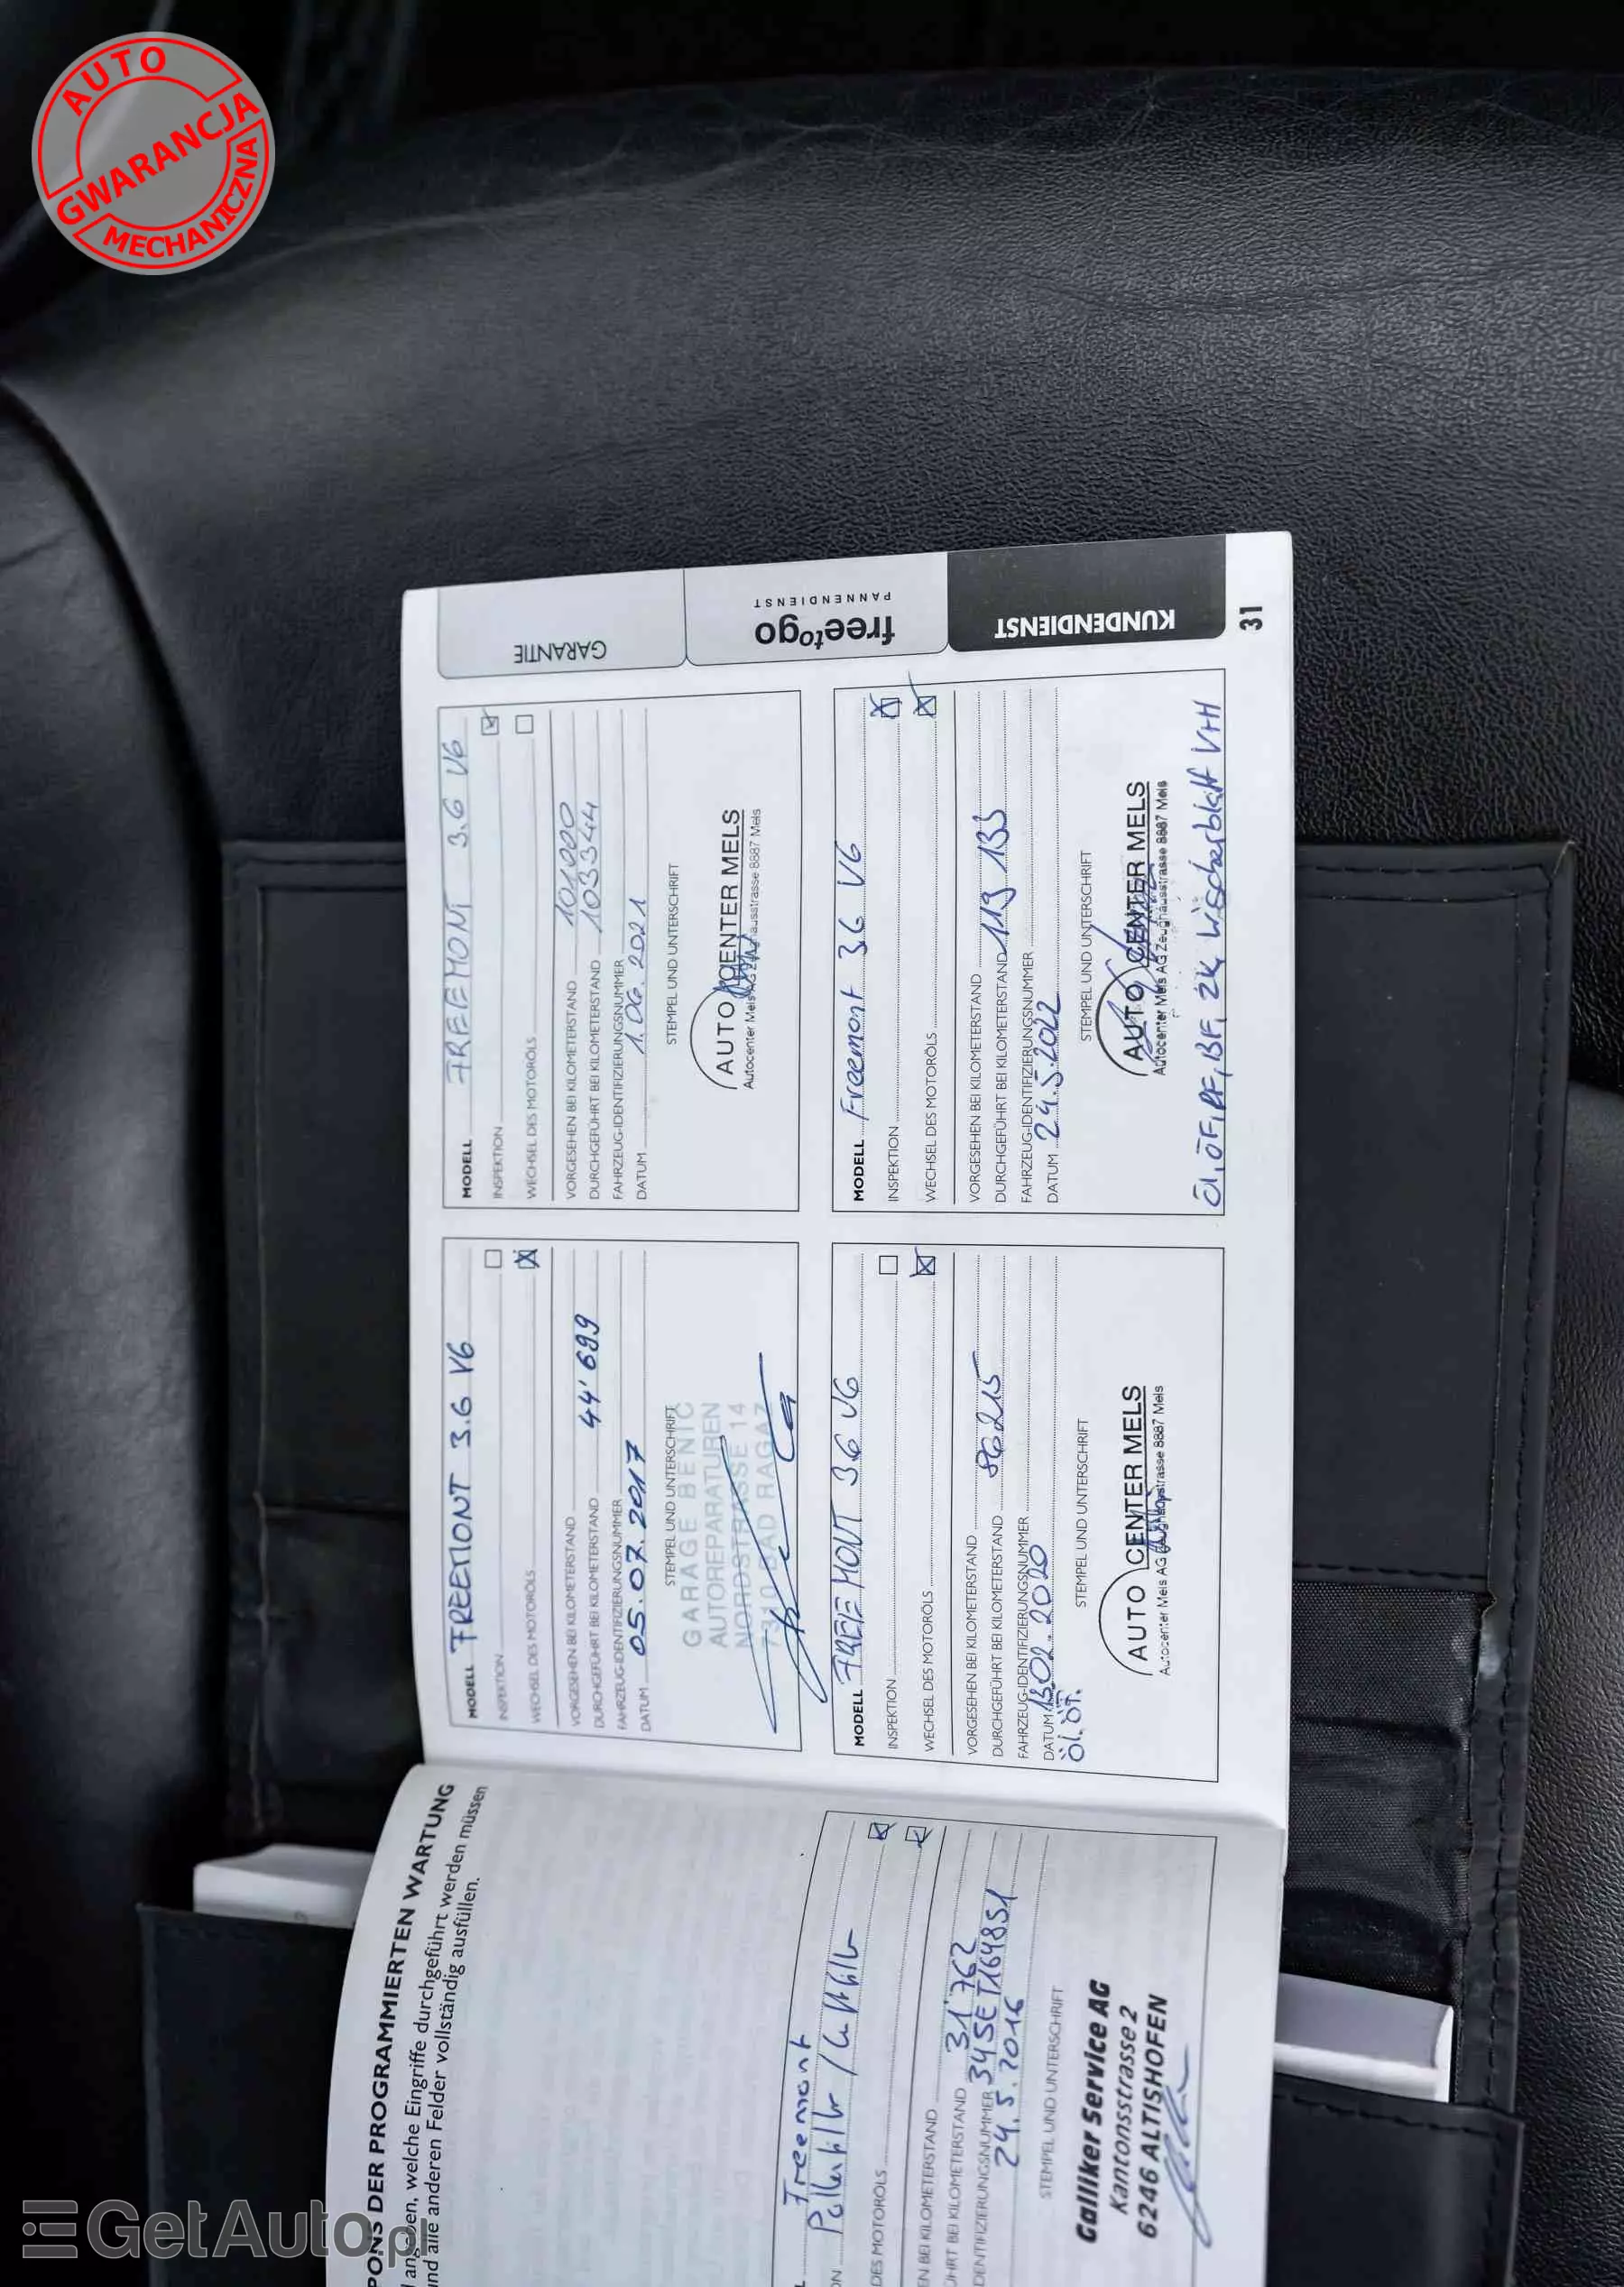 AUTO
GWARANCJA
MECHANICZNA
GARANTIE
freetogo
PANNENDIENST
KUNDENDIENST
31
MODELL FREEMONT 3.6 V6
INSPEKTION
WECHSEL DES MOTORÖLS
VORGESEHEN BEI KILOMETERSTAND
DURCHGEFÜHRT BEI KILOMETERSTAND 44'699
FAHRZEUG-IDENTIFIZIERUNGSNUMMER
DATUM 05.07.2017
STEMPEL UND UNTERSCHRIFT
GARAGE BENIC
AUTOREPARATUREN
NORDSTRASSE 14
7310 BAD RAGAZ
MODELL FREEMONT 3.6 V6
INSPEKTION
WECHSEL DES MOTORÖLS
VORGESEHEN BEI KILOMETERSTAND 101000
DURCHGEFÜHRT BEI KILOMETERSTAND 103344
FAHRZEUG-IDENTIFIZIERUNGSNUMMER
DATUM 1.06.2021
STEMPEL UND UNTERSCHRIFT
AUTO CENTER MELS
Autocenter Mels AG Zeughausstrasse 8887 Mels
MODELL FREEMONT 3.6 V6
INSPEKTION
WECHSEL DES MOTORÖLS
VORGESEHEN BEI KILOMETERSTAND
DURCHGEFÜHRT BEI KILOMETERSTAND 86215
FAHRZEUG-IDENTIFIZIERUNGSNUMMER
DATUM 13.02.2020
Öl.ÖF.
STEMPEL UND UNTERSCHRIFT
AUTO CENTER MELS
Autocenter Mels AG Zeughausstrasse 8887 Mels
MODELL Freemont 3.6 V6
INSPEKTION
WECHSEL DES MOTORÖLS
VORGESEHEN BEI KILOMETERSTAND
DURCHGEFÜHRT BEI KILOMETERSTAND 119 133
FAHRZEUG-IDENTIFIZIERUNGSNUMMER
DATUM 24.5.2022
STEMPEL UND UNTERSCHRIFT
AUTO CENTER MELS
Autocenter Mels AG Zeughausstrasse 8887 Mels
Öl, ÖF, PF, BF, ZK, Wischerblatt VH
PONS DER PROGRAMMIERTEN WARTUNG
angeben, welche Eingriffe durchgeführt werden müssen
und alle anderen Felder vollständig ausfüllen.
Freemont
DES MOTORÖLS
EN BEI KILOMETERSTAND
ÜHRT BEI KILOMETERSTAND 31'762
IDENTIFIZIERUNGSNUMMER 34SET164851
24.5.2016
STEMPEL UND UNTERSCHRIFT
Galliker Service AG
Kantonsstrasse 2
6246 ALTISHOFEN
GetAuto.pl